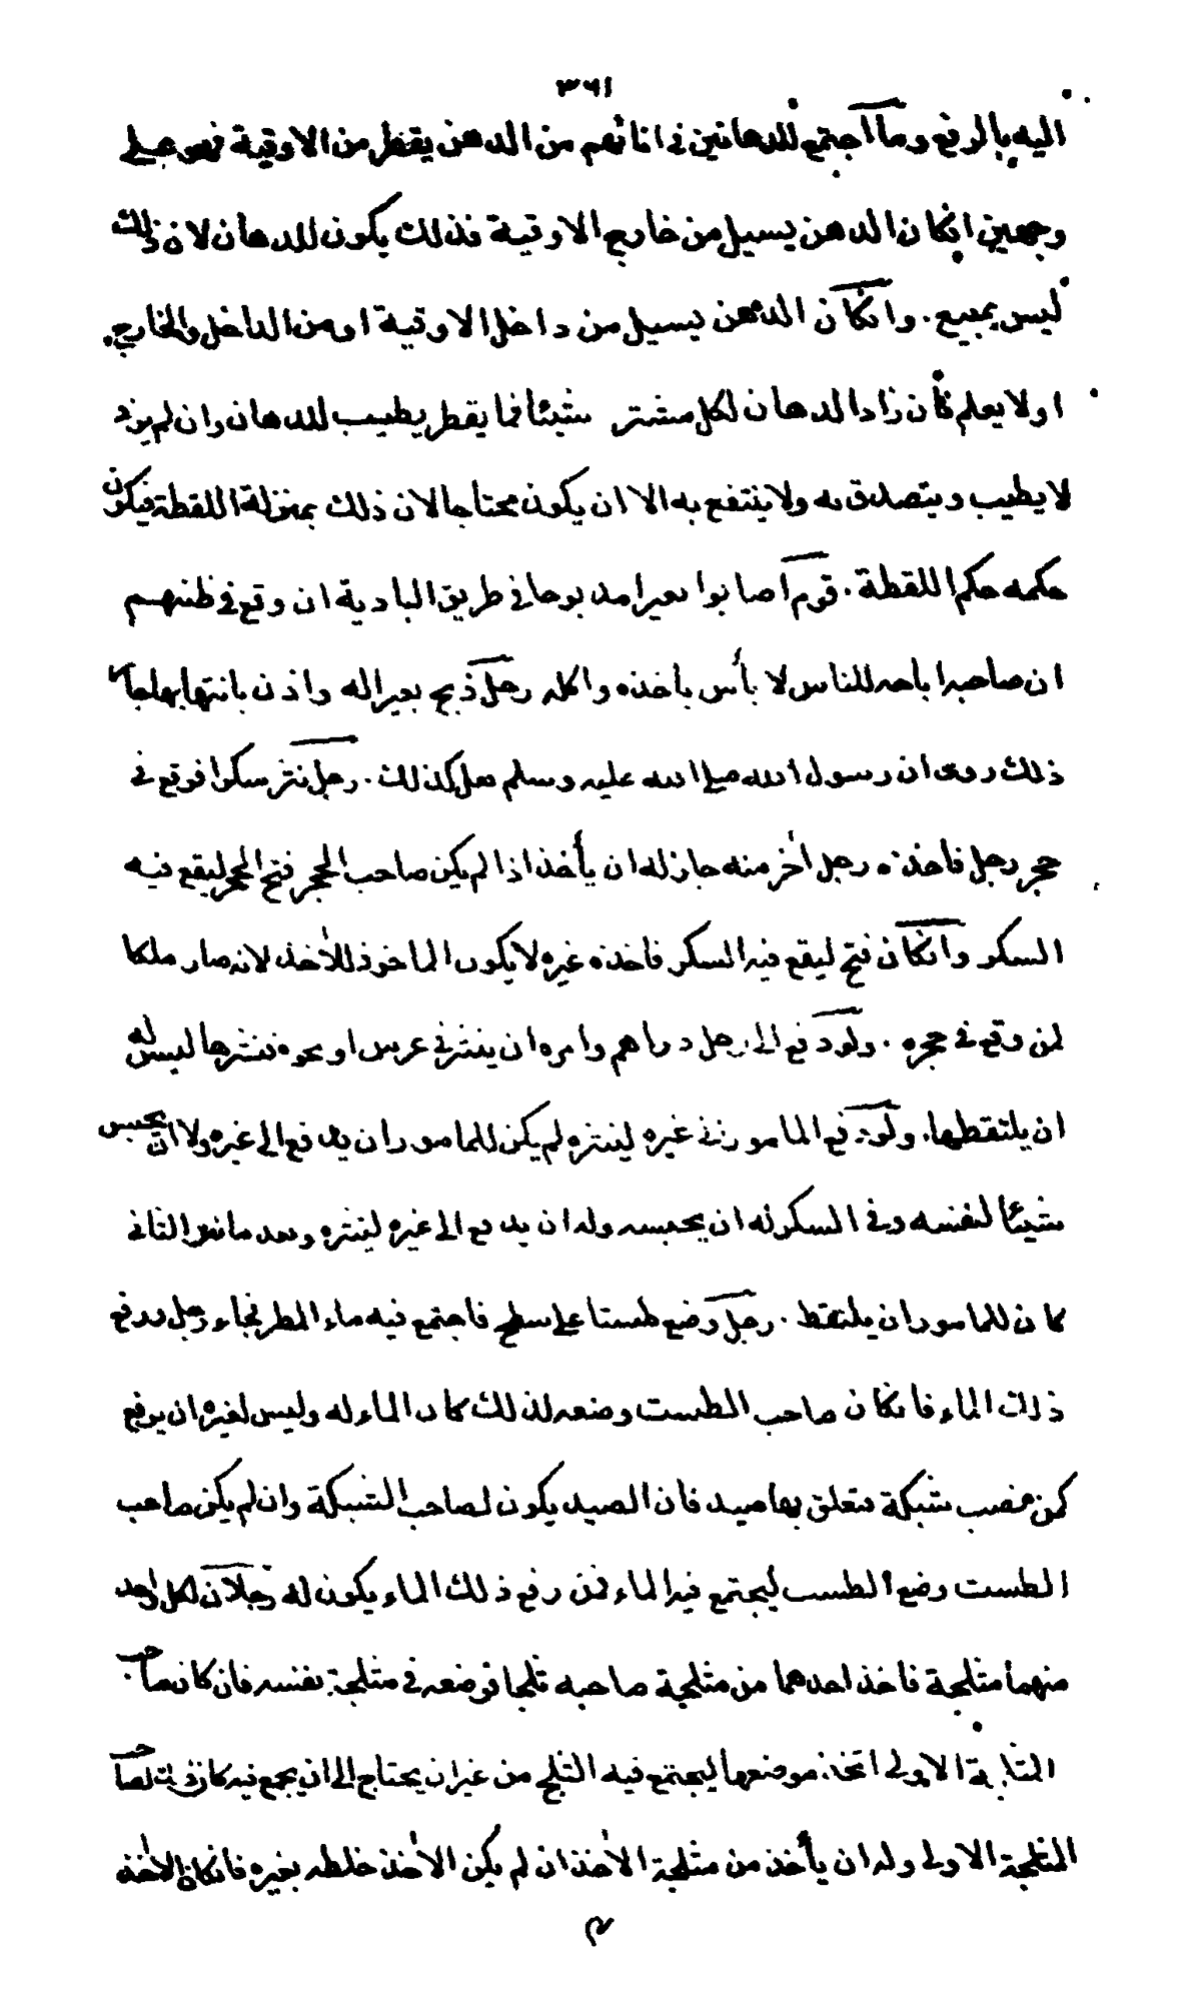 ٣٦١
اليه بالرفع وما اجتمع للدهانين في اناءهم من الدهن يقطر من الاوقية فهو على
وجهين انكان الدهن يسيل من خارج الاوقية فذلك يكون للدهان لان ذلك
ليس بمبيع . وانكان الدهن يسيل من داخل الاوقية او من الداخل والخارج
او لا يعلم فان زاد الدهان لكل مشتر شيئا فما يقطر يطيب للدهان وان لم يزد
لا يطيب ويتصدق به ولا ينتفع به الا ان يكون محتاجا لان ذلك بمنزلة اللقطة فيكون
حكمه حكم اللقطة . قوم اصابوا بعيرا مذبوحا في طريق البادية ان وقع في ظنهم
ان صاحبه اباحه للناس لا بأس بأخذه واكله رجل ذبح بعيرا له واذن بانتهابها جاز
ذلك روى ان رسول الله صلى الله عليه وسلم فعل كذلك . رجل نثر سكرا فوقع في
حجر رجل فاخذه رجل اخر منه جاز له ان يأخذ اذا لم يكن صاحب الحجر فتح الحجر ليقع فيه
السكر وانكان فتح ليقع فيه السكر فاخذه غيره لا يكون الماخوذ للآخذ لانه صار ملكا
لمن وقع في حجره . ولو دفع الى رجل دراهم وامره ان ينثر في عرس او نحوه فنثرها ليس له
ان يلتقطها . ولو دفع المامور الى غيره لينثره لم يكن للمامور ان يدفع الى غيره ولا ان يحبس
شيئا لنفسه وفي السكر له ان يحبسه وله ان يدفع الى غيره لينثره وبعد ما نثر الثاني
كان للمامور ان يلتقط . رجل وضع طستا على سطح فاجتمع فيه ماء المطر فجاء رجل ورفع
ذلك الماء فانكان صاحب الطست وضعه لذلك كان الماء له وليس لغيره ان يرفع
كمن نصب شبكة فتعلق بها صيد فان الصيد يكون لصاحب الشبكة وان لم يكن صاحب
الطست وضع الطست ليجتمع فيه الماء فمن رفع ذلك الماء يكون له رجلان لكل واحد
منهما مثلجة فاخذ احدهما من مثلجة صاحبه ثلجا فوضعه في مثلجة نفسه فان كان صاحب
المثلجة الاولى اتخذ موضعها ليجتمع فيه الثلج من غير ان يحتاج الى ان يجمع فيه كان ذلك لصاحب
المثلجة الاولى وله ان يأخذ من مثلجة الآخذ ان لم يكن الآخذ خلطه بغيره فانكان الآخذ